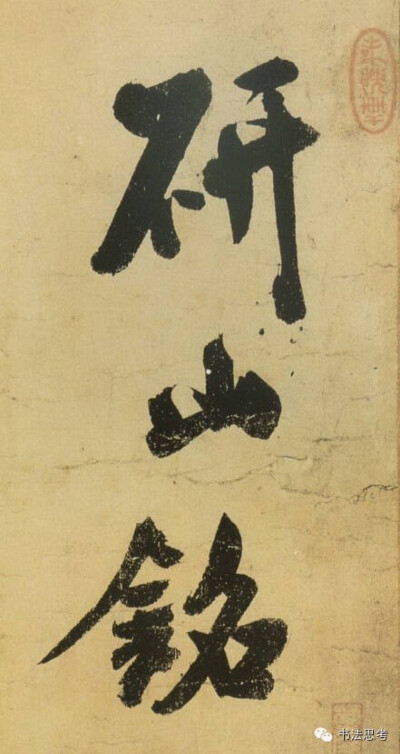 研山銘
书法思考